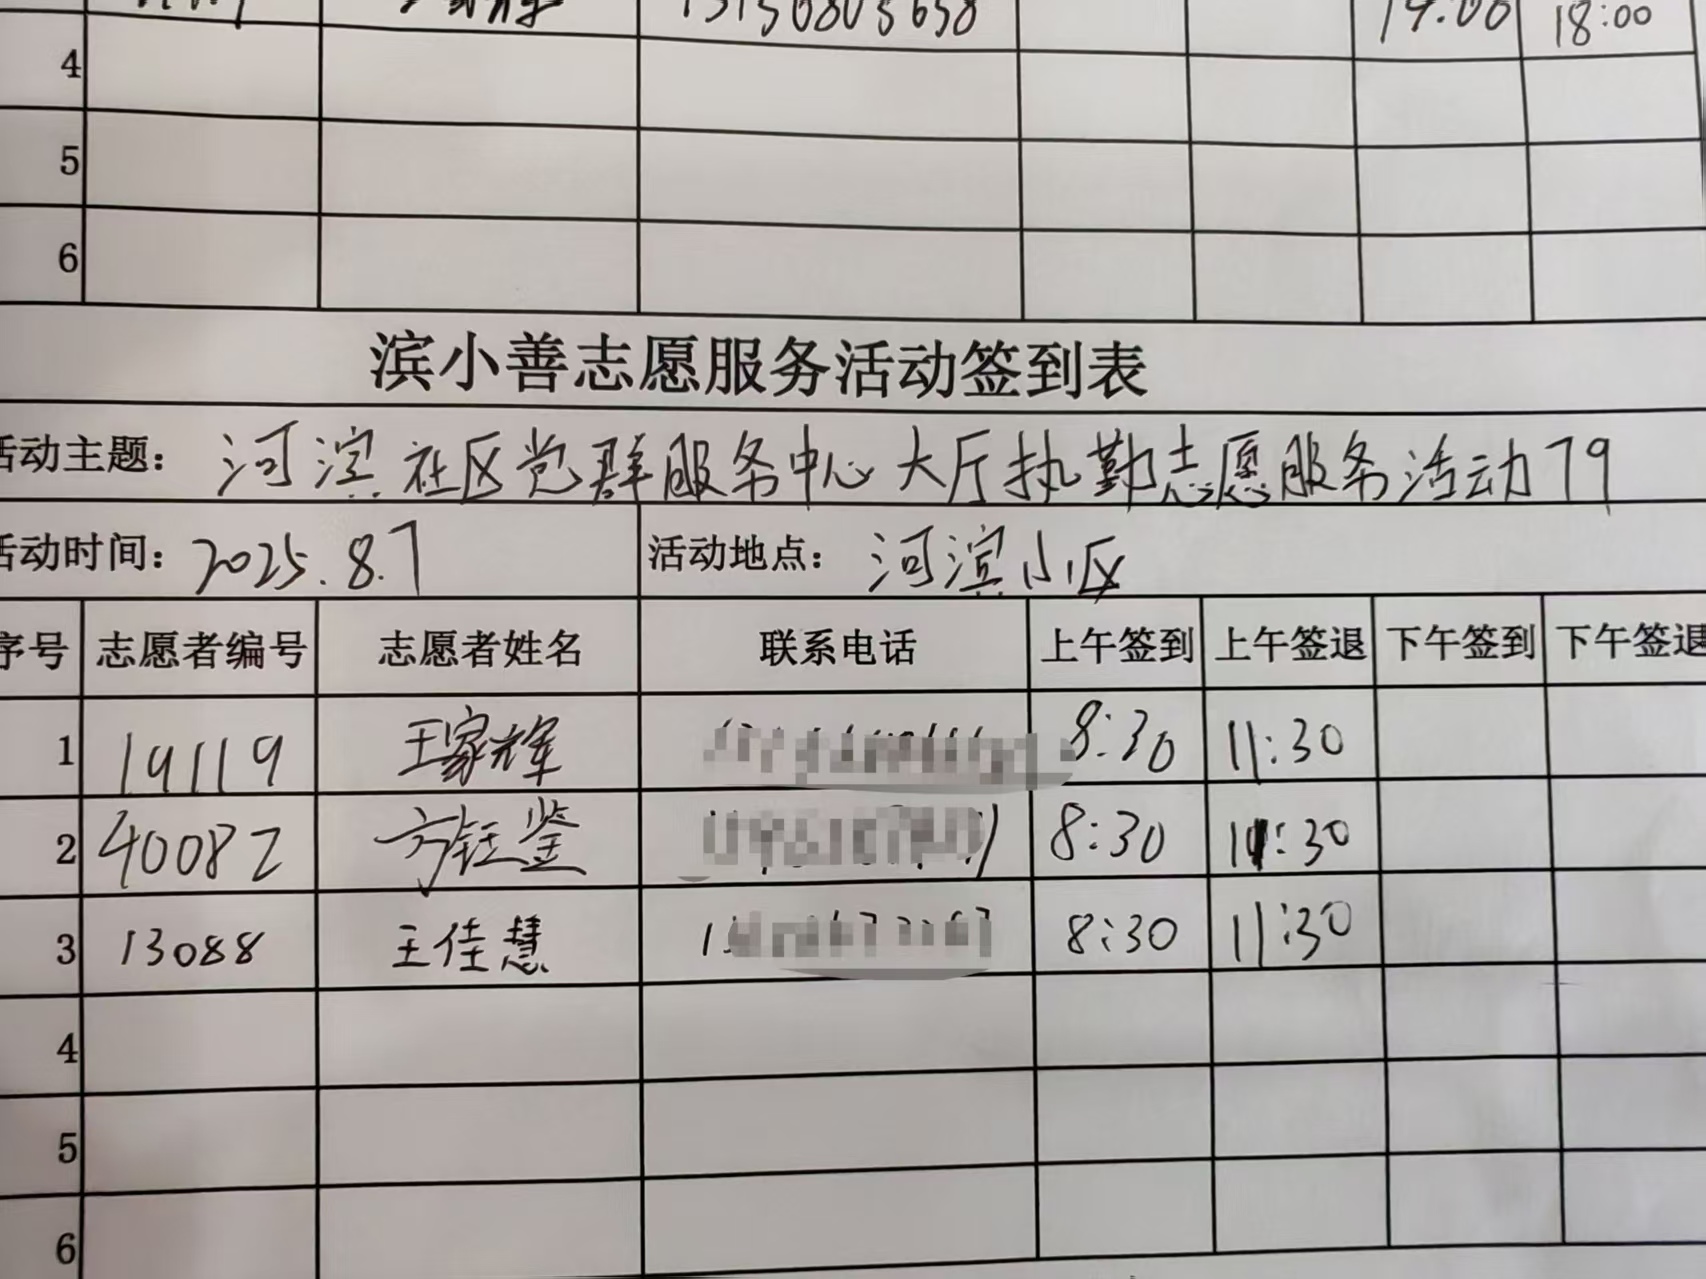 18:00
4
5
6
滨小善志愿服务活动签到表
活动主题: 河滨社区党群服务中心大厅执勤志愿服务活动79
活动时间: 2025.8.7 活动地点: 河滨小区
序号 志愿者编号 志愿者姓名 联系电话 上午签到 上午签退 下午签到 下午签退
1 19119 王家辉 8:30 11:30
2 40082 方钰鉴 8:30 11:30
3 13088 王佳慧 8:30 11:30
4
5
6